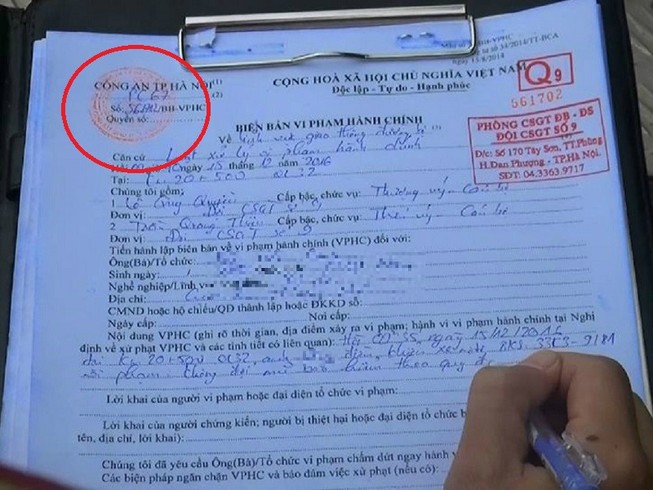 Mẫu số BB-VPHC
34/2014/TT-BCA
CÔNG AN TP HÀ NỘI (1)
CỘNG HOÀ XÃ HỘI CHỦ NGHĨA VIỆT NAM
PC67 (2)
Độc lập - Tự do - Hạnh phúc
Q9
Số: /BB-VPHC
561702
Quyển số:
BIÊN BẢN VI PHẠM HÀNH CHÍNH
Về lĩnh vực giao thông đường bộ
PHÒNG CSGT ĐB - ĐS
ĐỘI CSGT SỐ 9
Đ/c: Số 170 Tây Sơn, TT.Phùng
H.Đan Phượng - TP.Hà Nội.
SĐT: 04.3363 9717
Căn cứ Luật xử lý vi phạm hành chính
ngày 15 tháng 12 năm 2016
Tại: Km 20+500 QL32
Chúng tôi gồm:
1. Quyền Cấp bậc, chức vụ: Thượng úy - Cán bộ
Đơn vị: Đội CSGT số 9
2. Trần Quang Cấp bậc, chức vụ: Thiếu úy - Cán bộ
Đơn vị: Đội CSGT số 9
Tiến hành lập biên bản về vi phạm hành chính (VPHC) đối với:
Ông(Bà)/Tổ chức:
Sinh ngày:
Nghề nghiệp/Lĩnh
Địa chỉ:
CMND hoặc hộ chiếu/QĐ thành lập hoặc ĐKKD số:
Ngày cấp: Nơi cấp:
Nội dung VPHC (ghi rõ thời gian, địa điểm xảy ra vi phạm; hành vi vi phạm hành chính tại Nghị
định về xử phạt VPHC và các tình tiết có liên quan): Hồi ngày 15/12/2016
tại Km 20+500 QL32, anh điều khiển xe BKS: 33
vi phạm: không đội mũ bảo hiểm theo quy
Lời khai của người vi phạm hoặc đại diện tổ chức vi phạm:
Lời khai của người chứng kiến; người bị thiệt hại hoặc đại diện tổ chức bị
tên, địa chỉ, lời khai):
Chúng tôi đã yêu cầu Ông(Bà)/Tổ chức vi phạm chấm dứt ngay hành
Các biện pháp ngăn chặn VPHC và bảo đảm việc xử phạt (nếu có):